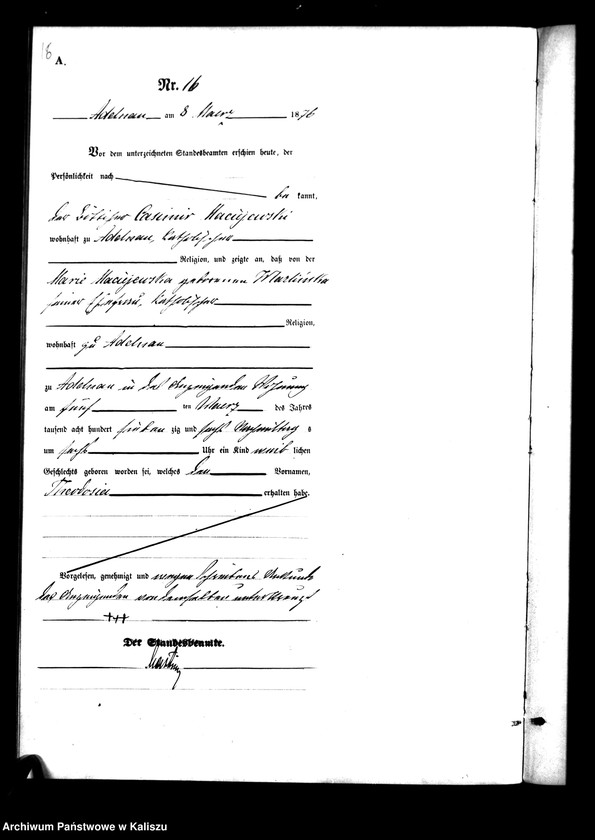 18
A.
Nr. 16
Adelnau am 8 Maerz 1876
Vor dem unterzeichneten Standesbeamten erschien heute, der
Persönlichkeit nach
be kannt,
der Casimir Maciejewski
wohnhaft zu Adelnau, katholischer
Religion, und zeigte an, daß von der
Marie Maciejewska geborenen
seiner Ehefrau, katholischer
Religion,
wohnhaft zu Adelnau
zu Adelnau in des Anzeigenden Wohnung
am fünf ten Maerz des Jahres
tausend acht hundert sieben zig und sechs Vormittags
um sechs Uhr ein Kind weib lichen
Geschlechts geboren worden sei, welches den Vornamen,
Theodosia erhalten habe.
Vorgelesen, genehmigt und wegen Schreibens Unkunde
des Anzeigenden von demselben unterkreuzt
+++
Der Standesbeamte.
Archiwum Państwowe w Kaliszu